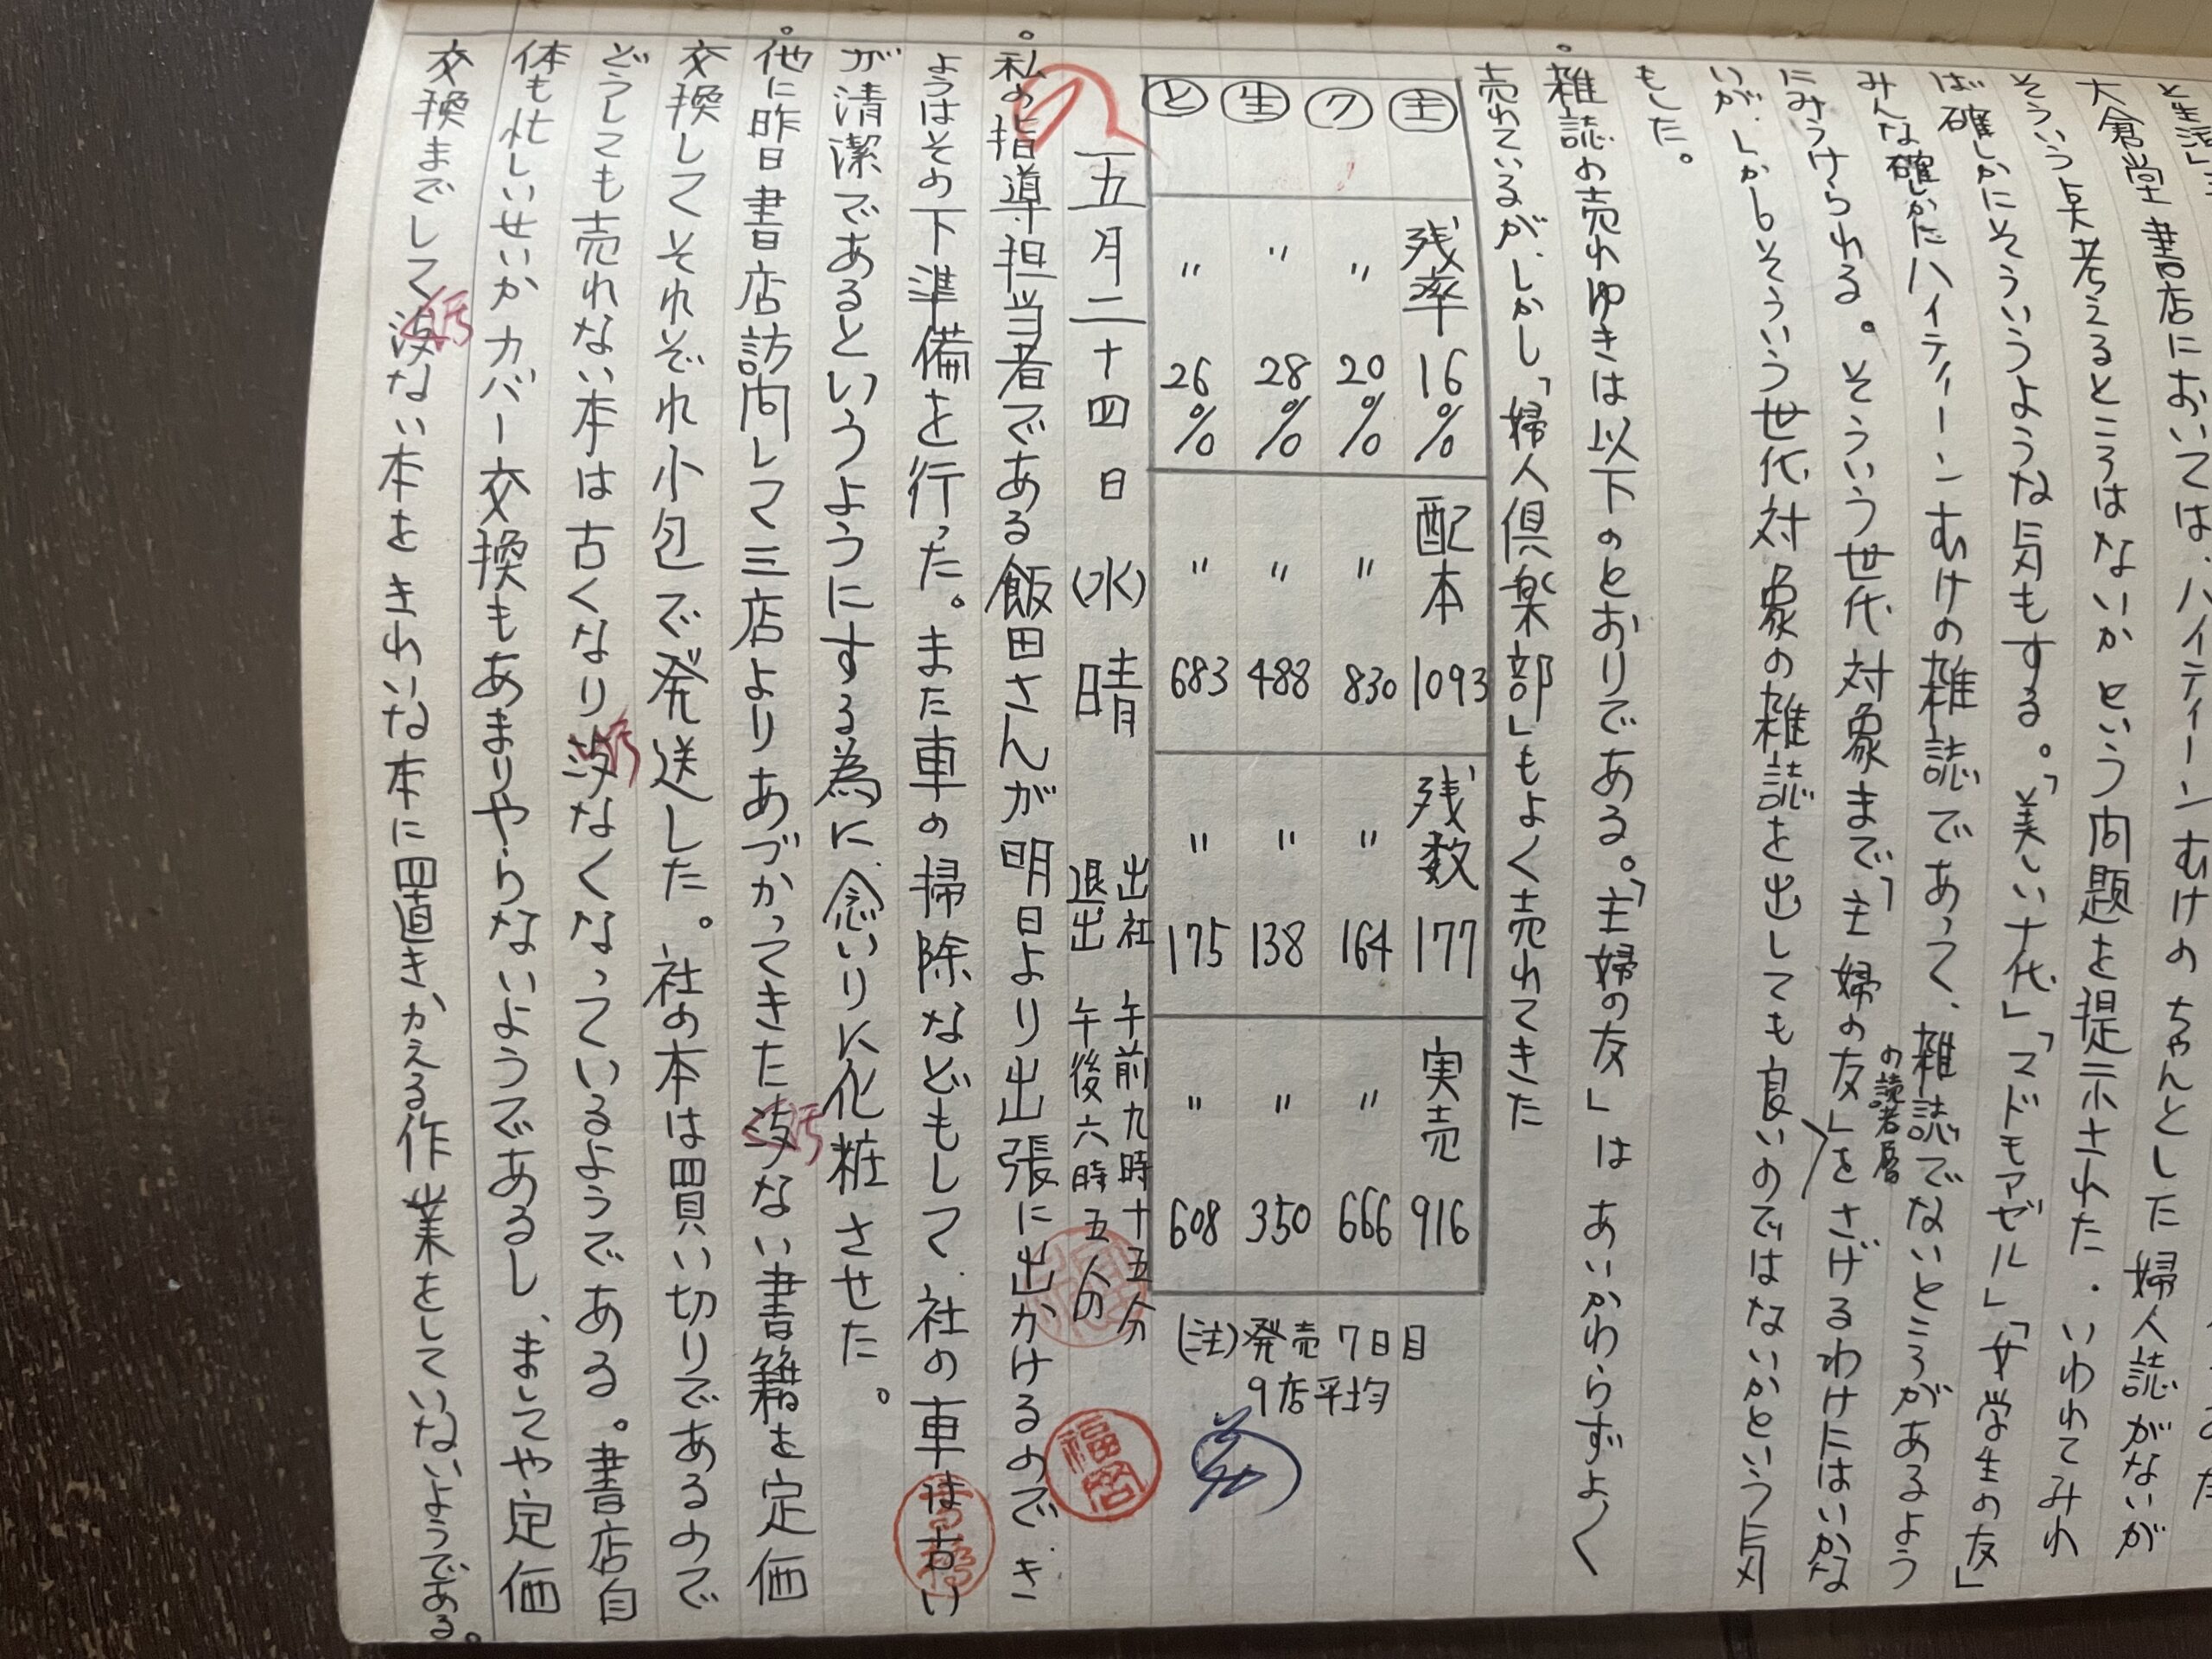 と生活」
大倉堂書店においては、ハイティーンむけのちゃんとした婦人誌がないが
そういう点考えるところはないかという問題を提示された．いわれてみれ
ば確しかにそういうような気もする。「美しい十代」「マドモアゼル」「女学生の友」
みんな確しかにハイティーンむけの雑誌であって、雑誌でないところがあるよう
にみうけられる。そういう世代対象まで「主婦の友」をさげるわけにはいかな
の読者層
いが、しかしそういう世代対象の雑誌を出しても良いのではないかという気
もした。
。雑誌の売れゆきは以下のとおりである。「主婦の友」はあいかわらずよく
売れているが、しかし「婦人倶楽部」もよく売れてきた
主 残率 16% 配本 1093 残数 177 実売 916
ク 〃 20% 〃 830 〃 164 〃 666
生 〃 28% 〃 488 〃 138 〃 350
と 〃 26% 〃 683 〃 175 〃 608
(注)発売7日目
9店平均
五月二十四日(水)晴
出社 午前九時十五分
退出 午後六時五分
福岡
。私の指導担当者である飯田さんが明日より出張に出かけるので、き
ょうはその下準備を行った。また車の掃除などもして、社の車は古い
が清潔であるというようにする為に、念いりに化粧させた。
。他に昨日書店訪問して三店よりあづかってきた汚ない書籍を定価
交換してそれぞれ小包で発送した。社の本は買い切りであるので
どうしても売れない本は古くなり汚なくなっているようである。書店自
体も忙しいせいかカバー交換もあまりやらないようであるし、ましてや定価
交換までして汚ない本をきれいな本に置きかえる作業をしていないようである。